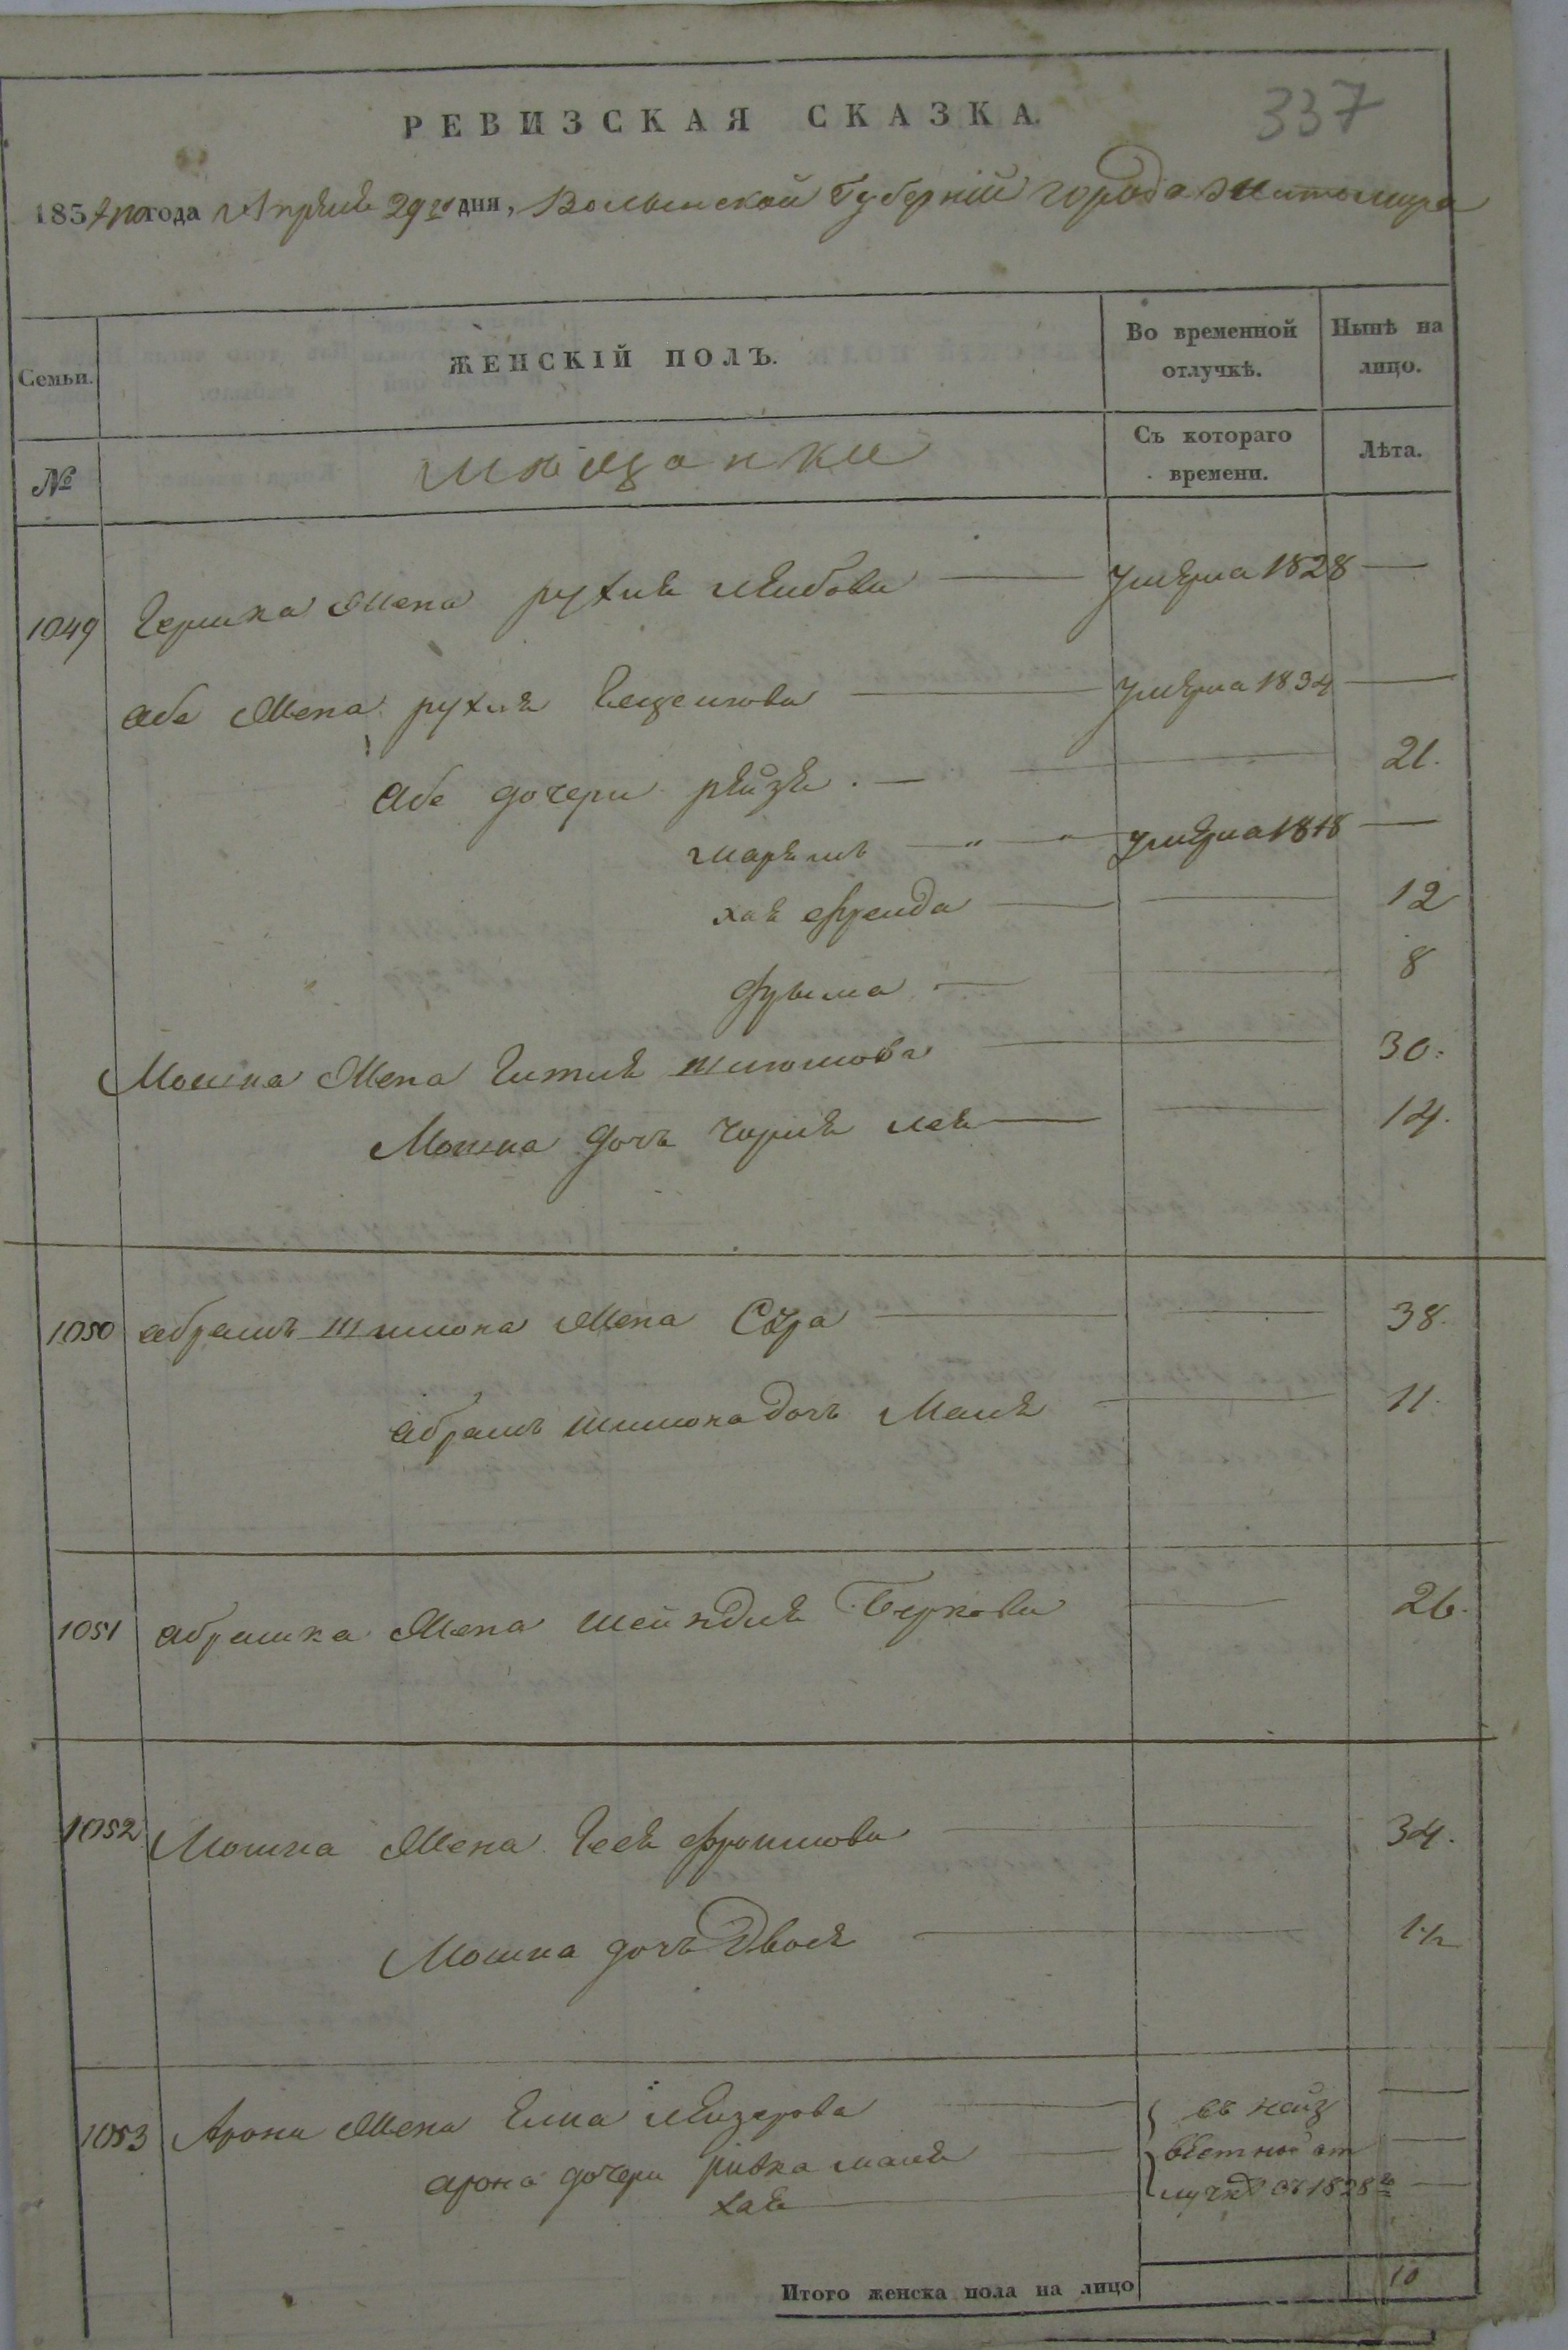 337
РЕВИЗСКАЯ СКАЗКА.
1834го года Апреля 29го дня, Волынской Губерніи города Житомира
Семьи. ЖЕНСКІЙ ПОЛЪ. Во временной отлучкѣ. Нынѣ на лицо.
№ мещанки Съ котораго времени. Лѣта.
1049 Гершка жена рухля Лейбова — умерла 1828 —
Абе жена рухля — умерла 1834 —
Абе дочери рейзя . — 21.
марьям — " — " — умерла 1818 —
хая Фрейда — 12
Фрыма — 8
Мошка жена Гитля Шлиомова — 30.
Мошка дочь чарня лея — 14.
1050 Абрамъ Шимона жена Сура — 38.
Абрамъ Шимона дочь Маля — 11.
1051 Абрамка жена шейндля Беркова — 26.
1052 Мошка жена Гея Фроимова — 34.
Мошка дочь Двося — 1/2
1053 Арона жена Елка Лейзерова — въ неиз —
Арона дочери Ривка маля — вестной от —
хая — лучке съ 1828го —
Итого женска пола на лицо 10